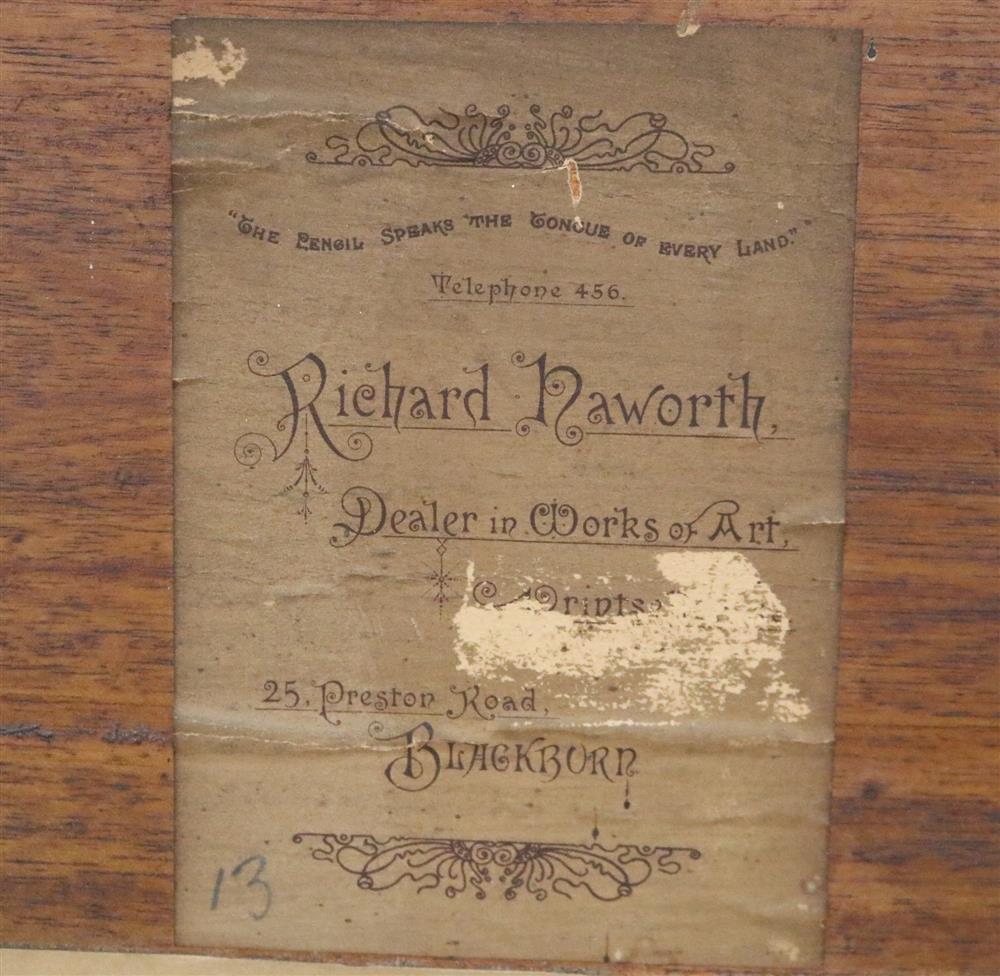 "THE PENCIL SPEAKS THE TONGUE OF EVERY LAND."
Telephone 456.
Richard Haworth,
Dealer in Works of Art,
Prints
25, Preston Road,
BLACKBURN
13